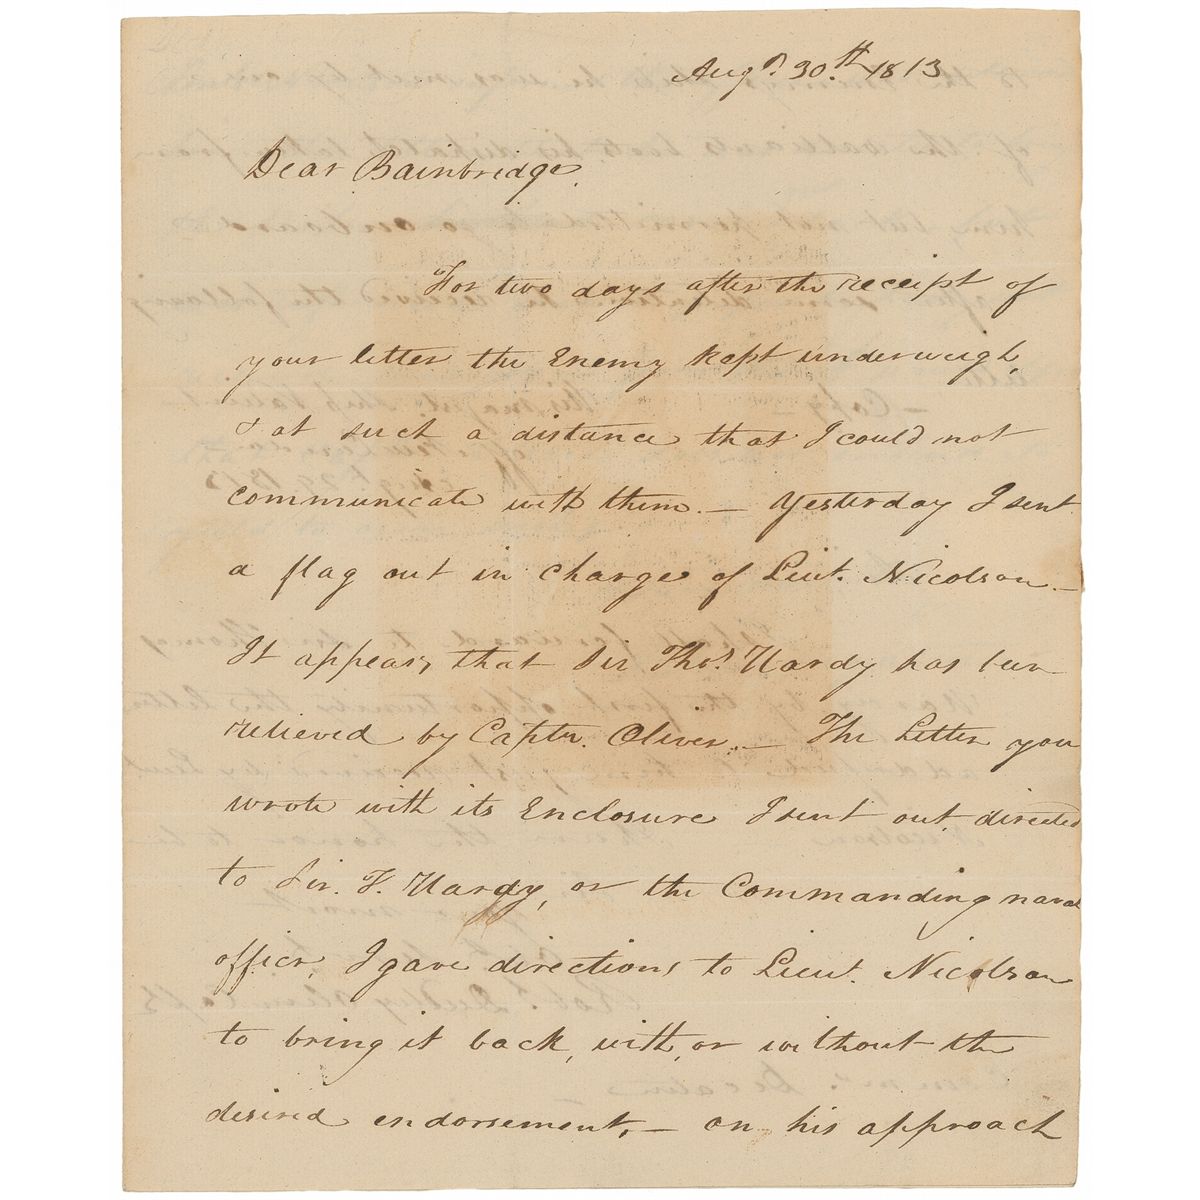 Augt. 30th. 1813
Dear Bainbridge.
For two days after the receipt of
your letter the Enemy kept underweigh,
& at such a distance that I could not
communicate with them. — Yesterday I sent
a flag out in charge of Lieut. Nicolson —
It appears, that Sir Thos. Hardy has been
relieved by Captn. Oliver. — The Letter you
wrote with its Enclosure I sent out, directed
to Sir. T. Hardy, or the Commanding naval
officer, I gave directions to Lieut. Nicolson
to bring it back, with, or without the
desired endorsement, — on his approach